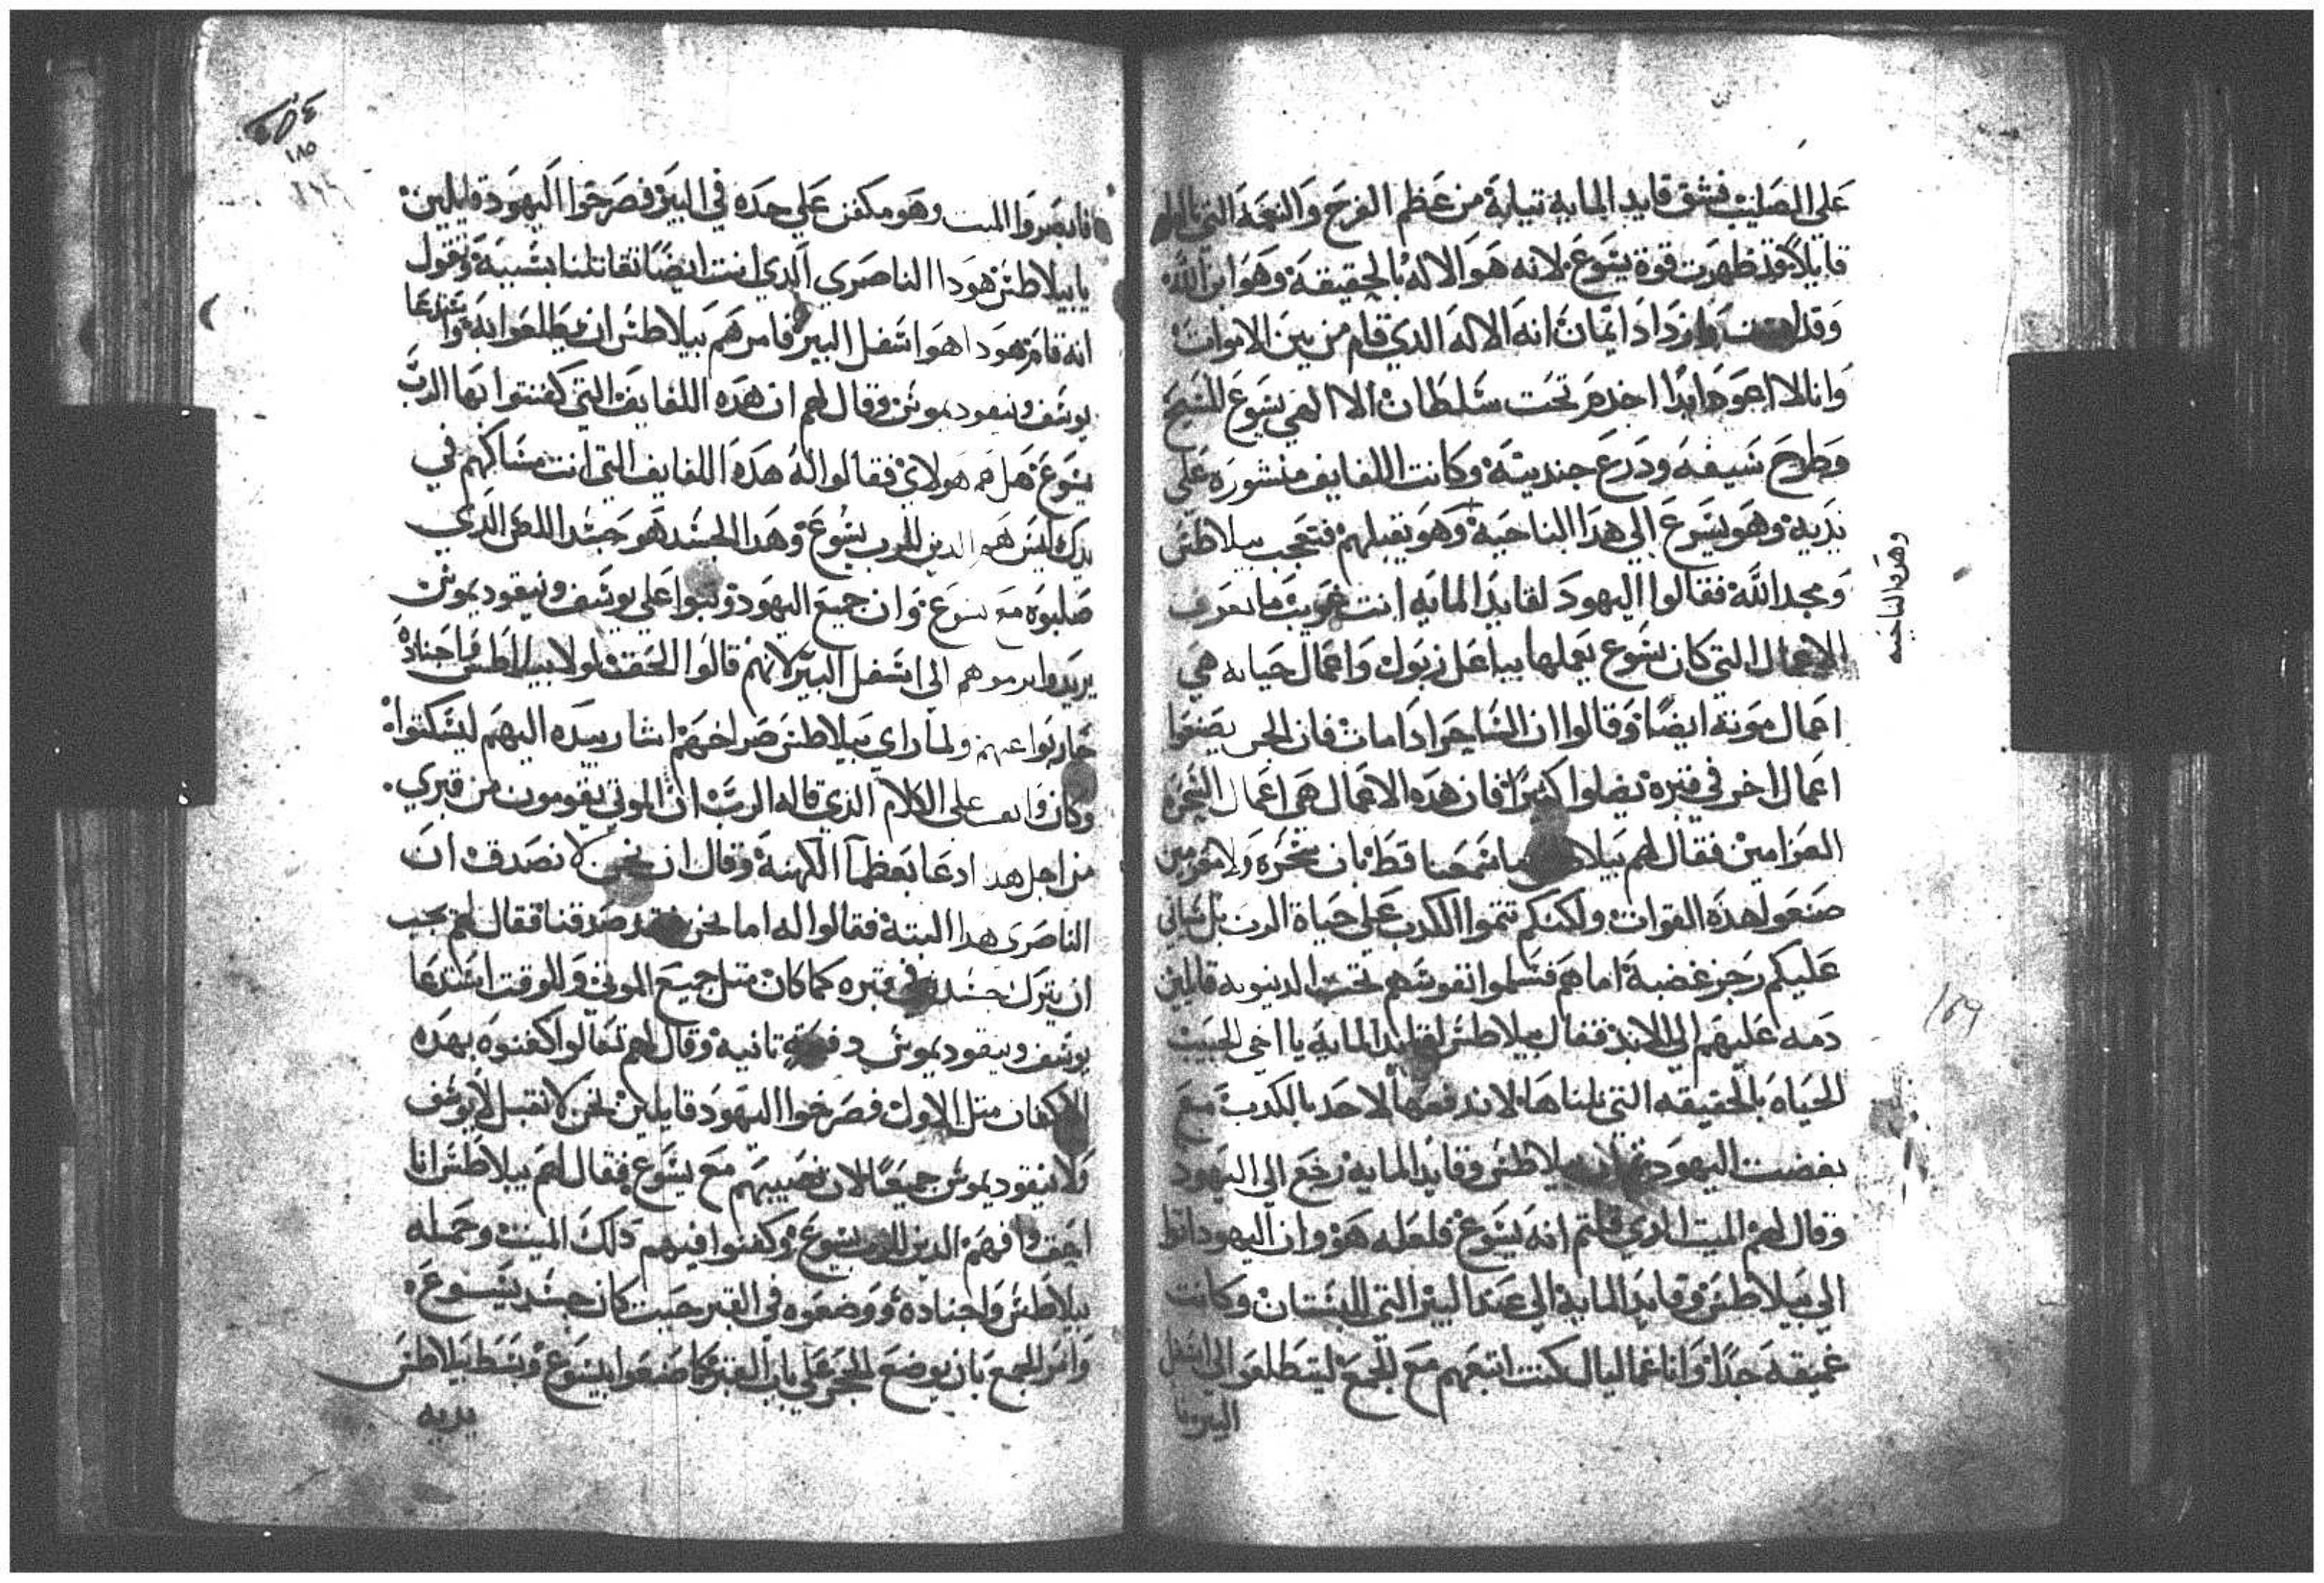 علي الصليب فشق قايد المايه تيابة من عظم الفرح والنعمة التي نالها
قايلاً قد ظهرت قوة يسوع لانه هو الاله بالحقيقه وهو ابن الله
وقد وازداد ايمان انه الاله الدي قام من بين الاموات
وانا لا اعود ابدًا اخدم تحت سلطان الا الهي يسوع المسيح
وطرح سيفه ودرع جنديته وكانت اللفايف منشوره علي
يديه وهو يسرع الي هدا الناحية وهو يقبلهم فتعجب بيلاطس
ومجد الله فقالوا اليهود لقايد المايه انت غريب ما تعرف
الاعمال التي كان يسوع يعملها بباعل زبول واعمال حياته هي
اعمال موته ايضًا وقالوا ان الساحر ادا مات فان الجن يصنعوا
اعمال اخر في قبره يضلوا كثيرًا فان هده الاعمال هي اعمال السحره
العزامين فقال لهم بيلاطس ما سمعنا قط بان سحره ولا معزمين
صنعوا هده القوات ولكنكم تتموا الكدب علي حياة الرب بل سياتي
عليكم رجز غضبة اما هم فسلموا نفوسهم تحت الدينونه قايلين
دمه عليهم الي الابد فقال بيلاطس لقايد المايه يا اخي الحبيب
الحياه بالحقيقه التي نلناها لا ندفعها لاحد بالكدب مع
بغضت اليهود بيلاطس وقايد المايه رجع الي اليهود
وقال لهم الميت الدي قلتم انه يسوع فلعله هو وان اليهود اتوا
الي بيلاطس وقايد المايه الي عند البير التي البستان وكانت
غميقه جدًا وانا غماليال كنت اتبعهم مع الجمع ليتطلعوا الي اسفل
البير نا
وهده الناحيه
159
١٨٥
نا بصروا الميت وهو مكفن علي حده في البير فصرخوا اليهود قايلين
يا بيلاطس هودا الناصري الدي انت ايضًا تقاتلنا بسببه وتقول
انه قام هودا هو اسفل البير فامرهم بيلاطس ان يطلعوا به واستدعا
يوسف ونيقوديموس وقال لهم ان هده اللفايف التي كفنتوا بها الرب
يسوع هل هم هولاي فقالوا له هده اللفايف التي انت مساكهم في
يدك ليس هو الدين للرب يسوع وهدا الجسد هو جسد اللص الدي
صلبوه مع يسوع وان جميع اليهود وثبوا علي يوسف ونيقوديموس
يريدوا يرموهم الي اسفل البير لانهم قالوا الحق لولا بيلاطس واجناده
حاربوا عنهم ولما راي بيلاطس صراخهم اشار بيده اليهم ليسكتوا
وكان واثق علي الكلام الدي قاله الرب ان الموتي يقومون من قبري
من اجل هدا ادعا بعظما الكهنة وقال ان نحن لا نصدق ان
الناصري هدا البتة فقالوا له اما نحن فقد صدقنا فقال لهم يجب
ان يترك جسده في قبره كما كان متل جميع الموتي وللوقت استدعا
يوسف ونيقوديموس دفعة تانيه وقال لهم تعالوا كفنوه بهده
الاكفان متل الاول فصرخوا اليهود قايلين نحن لا نقبل لا يوسف
ولا نيقوديموس جميعًا لان نصيبهم مع يسوع فقال لهم بيلاطس انا
احق فيهم الدين للرب يسوع وكفنوا فيهم دلك الميت وحمله
بيلاطس واجناده ووضعوه في القبر حيت كان جسد يسوع
وامر الجمع بان يوضع الحجر علي باب القبر كما صنعوا بيسوع وبسط بيلاطس
يديه